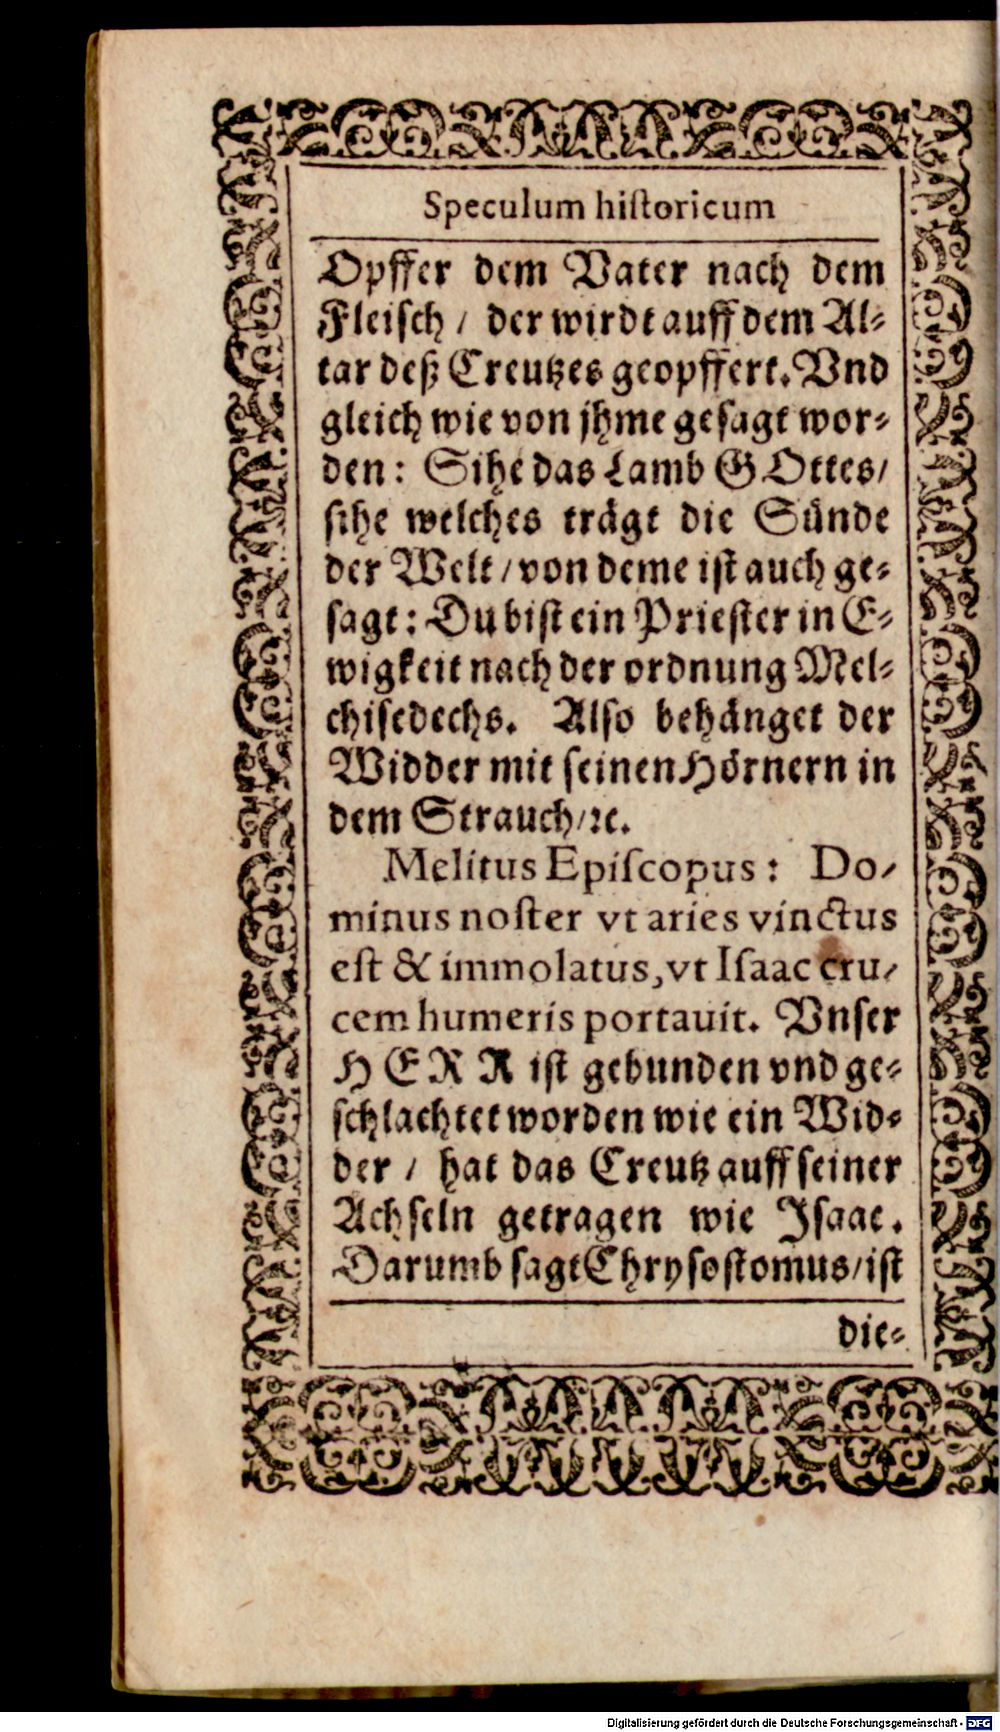 Speculum hiſtoricum
Opffer dem Vater nach dem
Fleiſch / der wirdt auff dem Al-
tar deß Creutzes geopffert. Vnd
gleich wie von jhme geſagt wor-
den: Sihe das Lamb GOttes/
ſihe welches trägt die Sünde
der Welt / von deme iſt auch ge-
ſagt: Du biſt ein Prieſter in E-
wigkeit nach der ordnung Mel-
chiſedechs. Alſo behänget der
Widder mit ſeinen Hörnern in
dem Strauch/ꝛc.
Melitus Epiſcopus: Do-
minus noſter vt aries vinctus
eſt & immolatus, vt Iſaac cru-
cem humeris portauit. Vnſer
HERR iſt gebunden vnd ge-
ſchlachtet worden wie ein Wid-
der / hat das Creutz auff ſeiner
Achſeln getragen wie Iſaac.
Darumb ſagt Chryſoſtomus/iſt
die-
Digitalisierung gefördert durch die Deutsche Forschungsgemeinschaft - DFG